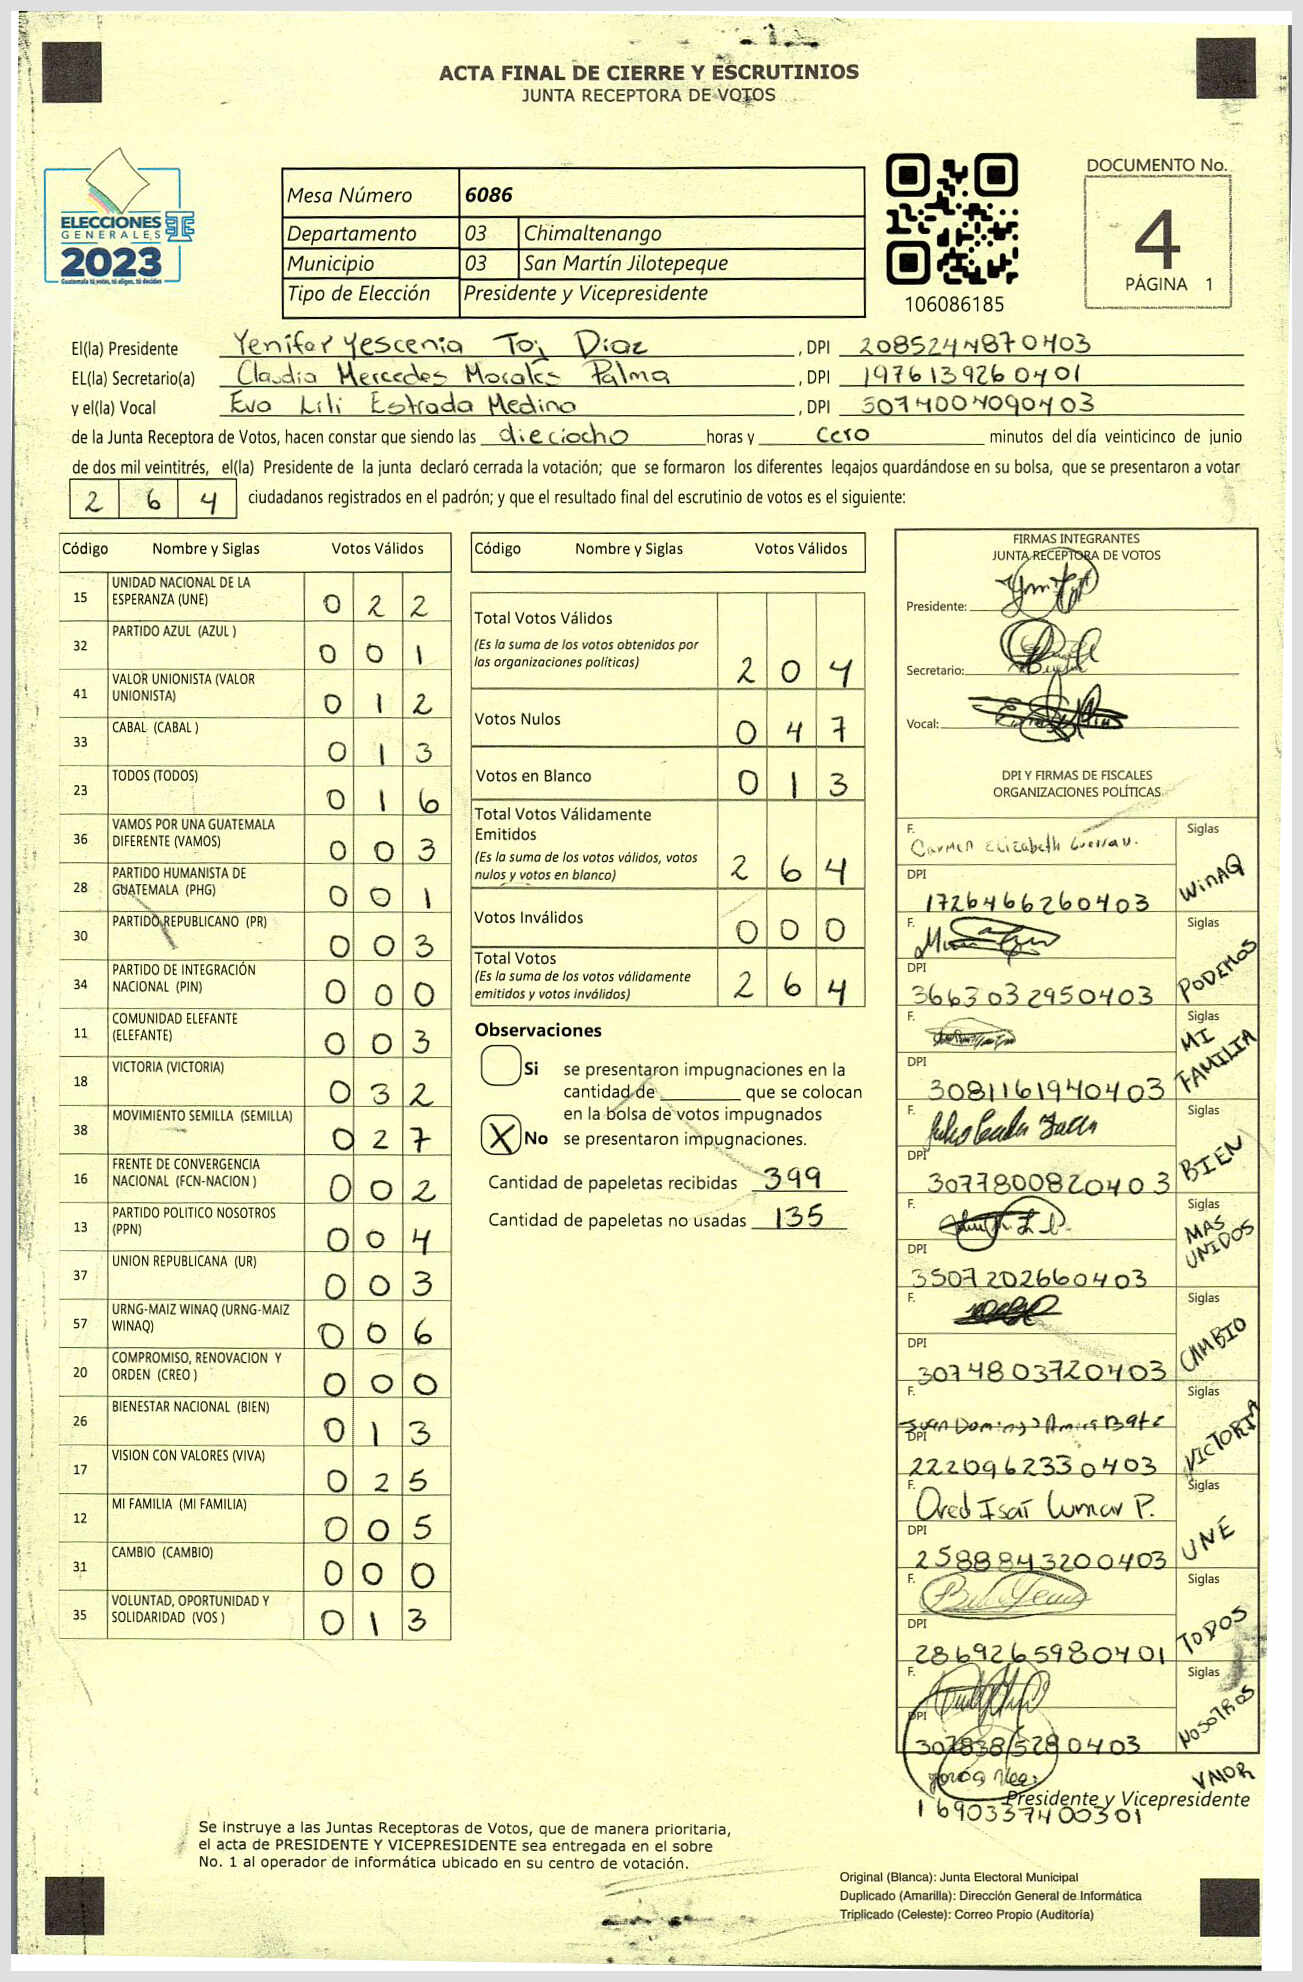 ACTA FINAL DE CIERRE Y ESCRUTINIOS
JUNTA RECEPTORA DE VOTOS
ELECCIONES
GENERALES
2023
Guatemala tú votas, tú eliges, tú decides
Mesa Número 6086
Departamento 03 Chimaltenango
Municipio 03 San Martín Jilotepeque
Tipo de Elección Presidente y Vicepresidente
106086185
DOCUMENTO No.
4
PÁGINA 1
El(la) Presidente Yenifer Yescenia Toj Diaz , DPI 2085244870403
EL(la) Secretario(a) Claudia Mercedes Morales Palma , DPI 1976139260401
y el(la) Vocal Eva Lili Estrada Medina , DPI 3074004090403
de la Junta Receptora de Votos, hacen constar que siendo las dieciocho horas y cero minutos del día veinticinco de junio
de dos mil veintitrés, el(la) Presidente de la junta declaró cerrada la votación; que se formaron los diferentes legajos guardándose en su bolsa, que se presentaron a votar
2 6 4 ciudadanos registrados en el padrón; y que el resultado final del escrutinio de votos es el siguiente:
Código Nombre y Siglas Votos Válidos
15 UNIDAD NACIONAL DE LA ESPERANZA (UNE) 0 2 2
32 PARTIDO AZUL (AZUL ) 0 0 1
41 VALOR UNIONISTA (VALOR UNIONISTA) 0 1 2
33 CABAL (CABAL ) 0 1 3
23 TODOS (TODOS) 0 1 6
36 VAMOS POR UNA GUATEMALA DIFERENTE (VAMOS) 0 0 3
28 PARTIDO HUMANISTA DE GUATEMALA (PHG) 0 0 1
30 PARTIDO REPUBLICANO (PR) 0 0 3
34 PARTIDO DE INTEGRACIÓN NACIONAL (PIN) 0 0 0
11 COMUNIDAD ELEFANTE (ELEFANTE) 0 0 3
18 VICTORIA (VICTORIA) 0 3 2
38 MOVIMIENTO SEMILLA (SEMILLA) 0 2 7
16 FRENTE DE CONVERGENCIA NACIONAL (FCN-NACION ) 0 0 2
13 PARTIDO POLITICO NOSOTROS (PPN) 0 0 4
37 UNION REPUBLICANA (UR) 0 0 3
57 URNG-MAIZ WINAQ (URNG-MAIZ WINAQ) 0 0 6
20 COMPROMISO, RENOVACION Y ORDEN (CREO ) 0 0 0
26 BIENESTAR NACIONAL (BIEN) 0 1 3
17 VISION CON VALORES (VIVA) 0 2 5
12 MI FAMILIA (MI FAMILIA) 0 0 5
31 CAMBIO (CAMBIO) 0 0 0
35 VOLUNTAD, OPORTUNIDAD Y SOLIDARIDAD (VOS ) 0 1 3
Código Nombre y Siglas Votos Válidos
Total Votos Válidos
(Es la suma de los votos obtenidos por las organizaciones políticas) 2 0 4
Votos Nulos 0 4 7
Votos en Blanco 0 1 3
Total Votos Válidamente Emitidos
(Es la suma de los votos válidos, votos nulos y votos en blanco) 2 6 4
Votos Inválidos 0 0 0
Total Votos
(Es la suma de los votos válidamente emitidos y votos inválidos) 2 6 4
Observaciones
Si se presentaron impugnaciones en la
cantidad de que se colocan
en la bolsa de votos impugnados
X No se presentaron impugnaciones.
Cantidad de papeletas recibidas 399
Cantidad de papeletas no usadas 135
FIRMAS INTEGRANTES
JUNTA RECEPTORA DE VOTOS
Presidente:
Secretario:
Vocal:
DPI Y FIRMAS DE FISCALES
ORGANIZACIONES POLÍTICAS
F. Carmen Elizabeth Siglas
DPI 1726466260403 WINAQ
F. Siglas
DPI 3663032950403 PODEMOS
F. Siglas
DPI 3081161940403 MI FAMILIA
F. Siglas
DPI 3077800820403 BIEN
F. Siglas
DPI 3507202660403 MAS UNIDOS
F. Siglas
DPI 3074803720403 CAMBIO
F. Juan Domingo Siglas
DPI 2220962330403 VICTORIA
F. Ored Isaí Cumar P. Siglas
DPI 2588843200403 UNE
F. Siglas
DPI 2869265980401 TODOS
F. Siglas
DPI 30783815280403 NOSOTROS
VALOR
Presidente y Vicepresidente
1690337400301
Se instruye a las Juntas Receptoras de Votos, que de manera prioritaria,
el acta de PRESIDENTE Y VICEPRESIDENTE sea entregada en el sobre
No. 1 al operador de informática ubicado en su centro de votación.
Original (Blanca): Junta Electoral Municipal
Duplicado (Amarilla): Dirección General de Informática
Triplicado (Celeste): Correo Propio (Auditoría)